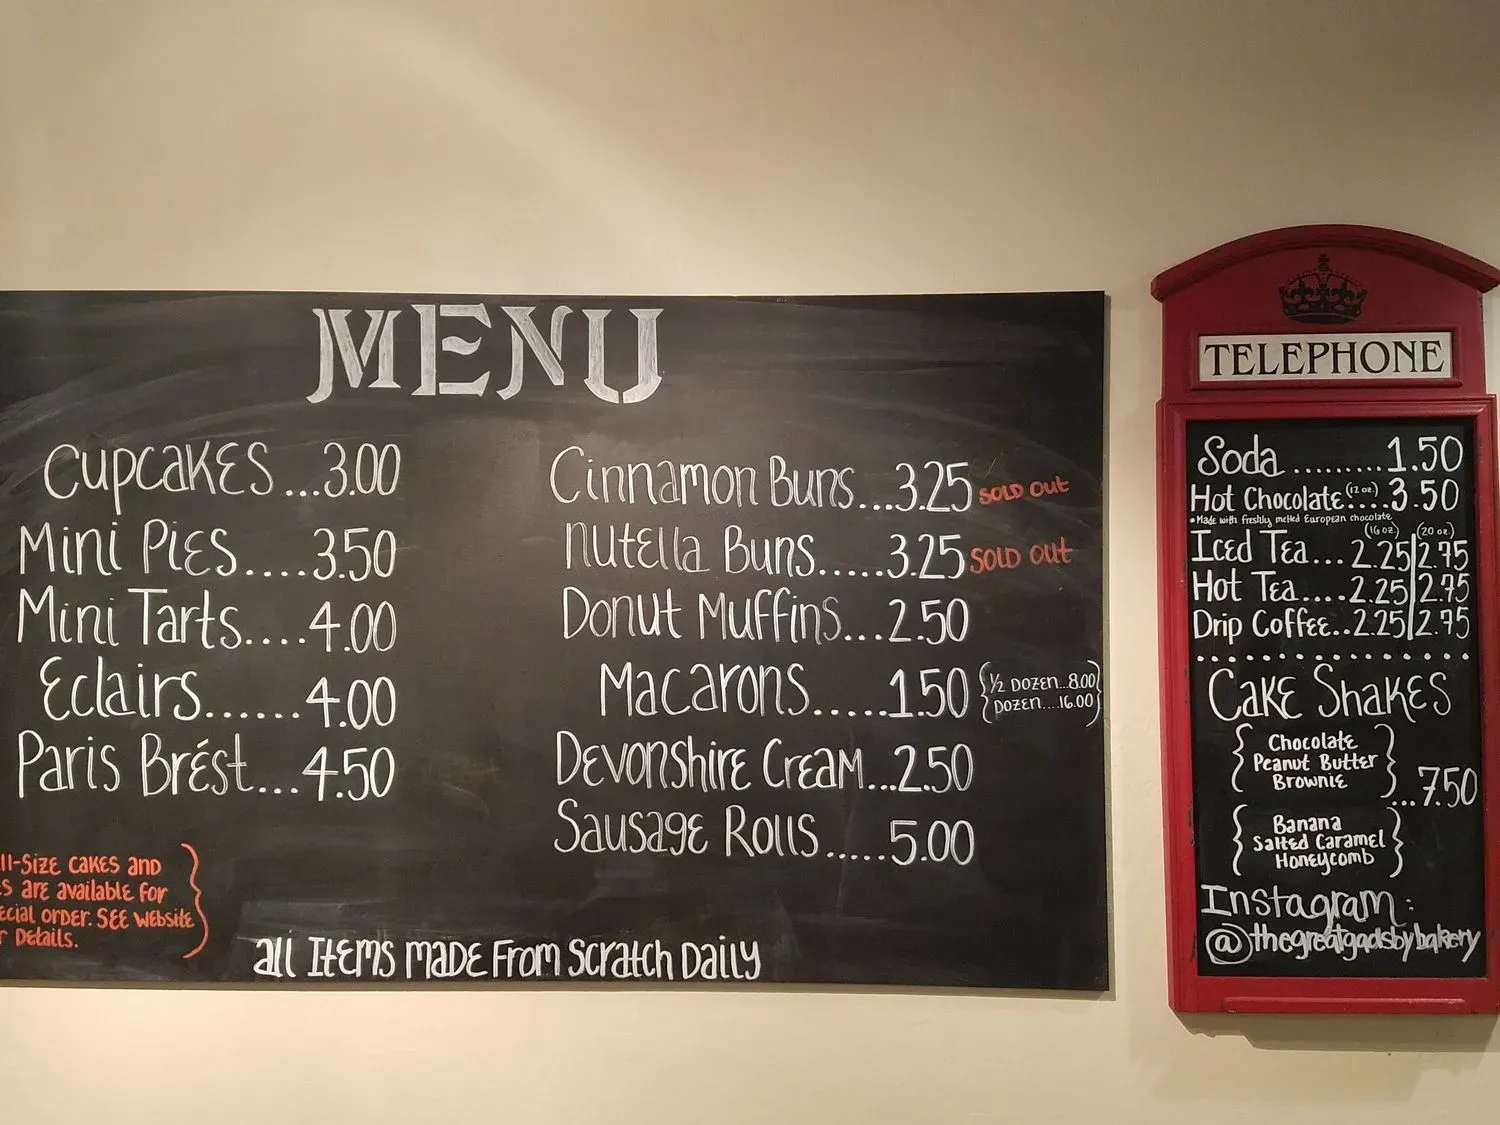 MENU
Cupcakes...3.00
Mini Pies....3.50
Mini Tarts....4.00
Eclairs......4.00
Paris Brést...4.50
ll-Size cakes and
s are available for
ecial order. See website
r Details.
Cinnamon Buns...3.25 SOLD OUT
Nutella Buns.....3.25 SOLD OUT
Donut Muffins...2.50
Macarons.....1.50
1/2 Dozen...8.00
Dozen....16.00
Devonshire Cream...2.50
Sausage Rolls.....5.00
all Items made From Scratch Daily
TELEPHONE
Soda.........1.50
Hot Chocolate (12 oz.)....3.50
•Made with freshly melted European chocolate
(16 oz.) (20 oz.)
Iced Tea...2.25|2.75
Hot Tea....2.25|2.75
Drip Coffee..2.25|2.75
Cake Shakes
Chocolate
Peanut Butter
Brownie
...7.50
Banana
Salted Caramel
Honeycomb
Instagram:
@thegreatgadsbybakery